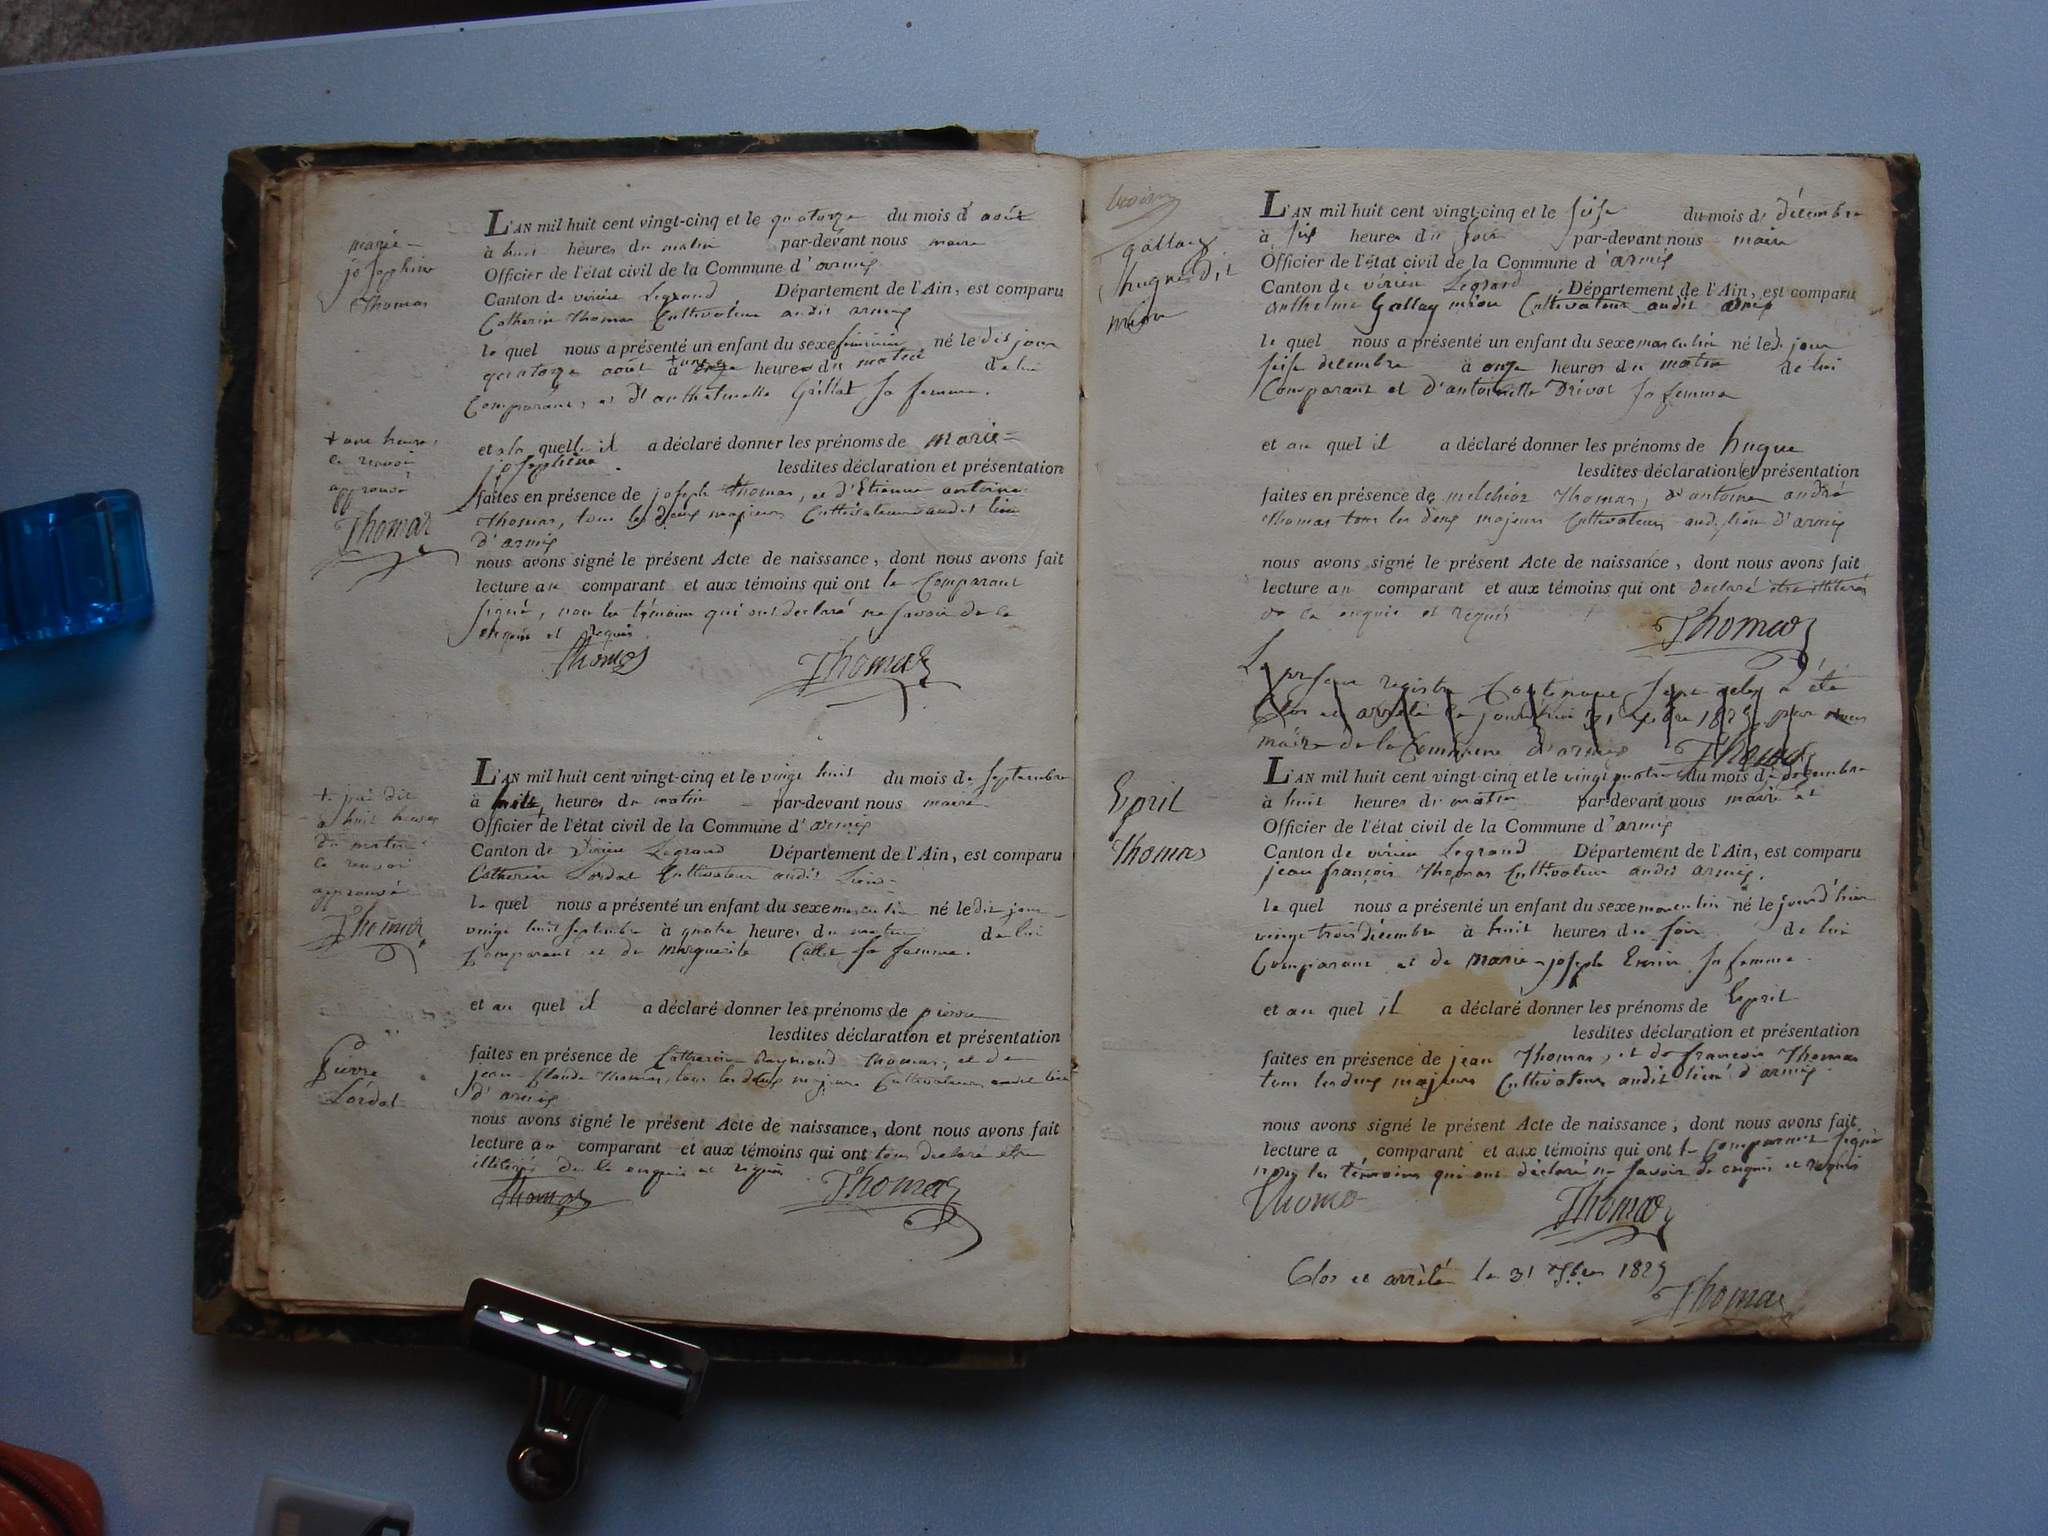 marie
josephine
Thomas
L'AN mil huit cent vingt-cinq et le quatorze du mois d' août
à huit heures du matin par-devant nous maire
Officier de l'état civil de la Commune d'armix
Canton de virieu Legrand Département de l'Ain, est comparu
Catherin Thomas Cultivateur audit armix
le quel nous a présenté un enfant du sexe feminin né le dit jour
quatorze août à + heures du matin de lui
Comparant, et d'anthelmette Grillat sa femme.
et a la quelle il a déclaré donner les prénoms de marie-
josephine. lesdites déclaration et présentation
faites en présence de joseph Thomas, et d'Etienne antoine
Thomas, tous les deux majeurs Cultivateurs audit lieu
d'armix
nous avons signé le présent Acte de naissance, dont nous avons fait
lecture au comparant et aux témoins qui ont le Comparant
signé, non les témoins qui ont declaré ne savoir de ce
enquis et requis
Thomas Thomas
+ une heure
ce renvoi
approuvé
Thomas
L'AN mil huit cent vingt-cinq et le vingt huit du mois de septembre
à huit + heures du matin par-devant nous maire
Officier de l'état civil de la Commune d'armix
Canton de Virieu Legrand Département de l'Ain, est comparu
Catherin Lordat Cultivateur audit Lieu
le quel nous a présenté un enfant du sexe masculin né le dit jour
vingt huit septembre à quatre heures du matin de lui
Comparant et de marguerite Callet sa femme.
et au quel il a déclaré donner les prénoms de pierre
lesdites déclaration et présentation
faites en présence de Catherin Raymond Thomas, et de
jean-Claude Thomas, tous les deux majeurs Cultivateurs audit lieu
d'armix
nous avons signé le présent Acte de naissance, dont nous avons fait
lecture au comparant et aux témoins qui ont tous declaré etre
illiterés de ce enquis et requis
Thomas Thomas
+ je dis
à huit heures
du matin
ce renvoi
approuvé
Thomas
Pierre
Lordat
gallay
hugue dit
mion
L'AN mil huit cent vingt-cinq et le seise du mois de décembre
à six heures du soir par-devant nous maire
Officier de l'état civil de la Commune d'armix
Canton de virieu Legrand Département de l'Ain, est comparu
anthelme Gallay mion Cultivateur audit armix
le quel nous a présenté un enfant du sexe masculin né le dit jour
seise decembre à onze heures du matin de lui
Comparant et d'antoinette Drivot sa femme
et au quel il a déclaré donner les prénoms de hugue
lesdites déclaration et présentation
faites en présence de melchior Thomas, et antoine andré
Thomas tous les deux majeurs Cultivateurs audit lieu d'armix
nous avons signé le présent Acte de naissance, dont nous avons fait
lecture au comparant et aux témoins qui ont declaré etre illiterés
de ce enquis et requis
Thomas
Le présent registre Contenant sept actes a été
Clos et arrêté ce jourd'hui 31 Xbre 1825 par nous
maire de la Commune d'armix Thomas
Esprit
Thomas
L'AN mil huit cent vingt-cinq et le vingt quatre du mois de décembre
à huit heures du matin par-devant nous maire et
Officier de l'état civil de la Commune d'armix
Canton de virieu Legrand Département de l'Ain, est comparu
jean françois Thomas Cultivateur audit armix.
le quel nous a présenté un enfant du sexe masculin né le jour d'hier
vingt trois décembre à huit heures du soir de lui
Comparant et de marie-joseph sa femme.
et au quel il a déclaré donner les prénoms de Esprit
lesdites déclaration et présentation
faites en présence de jean Thomas, et de francois Thomas
tous les deux majeurs Cultivateurs audit lieu d'armix.
nous avons signé le présent Acte de naissance, dont nous avons fait
lecture a comparant et aux témoins qui ont le Comparant signé
non les témoins qui ont déclaré ne savoir de enquis et requis
Thomas Thomas
Clos et arrêté le 31 Xbre 1825
Thomas